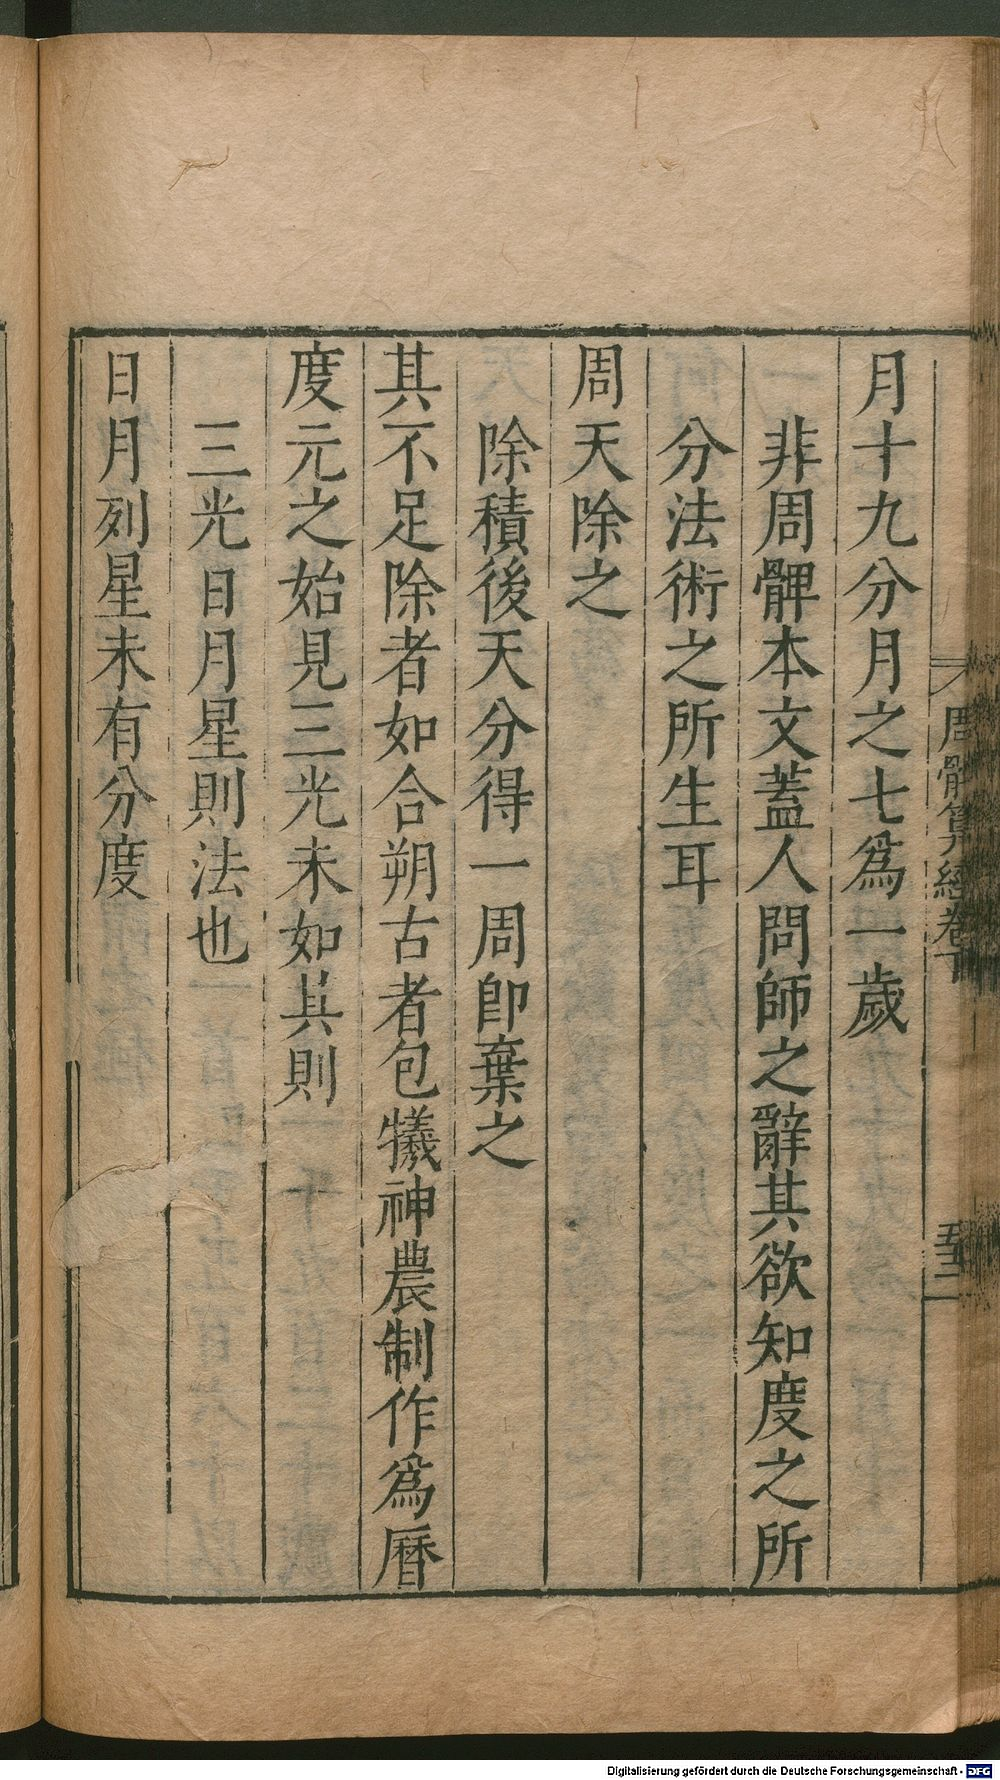 周髀算經卷下
五十二
月十九分月之七爲一歲
非周髀本文蓋人問師之辭其欲知度之所
分法術之所生耳
周天除之
除積後天分得一周卽棄之
其不足除者如合朔古者包犧神農制作爲曆
度元之始見三光未如其則
三光日月星則法也
日月列星未有分度
Digitalisierung gefördert durch die Deutsche Forschungsgemeinschaft - DFG